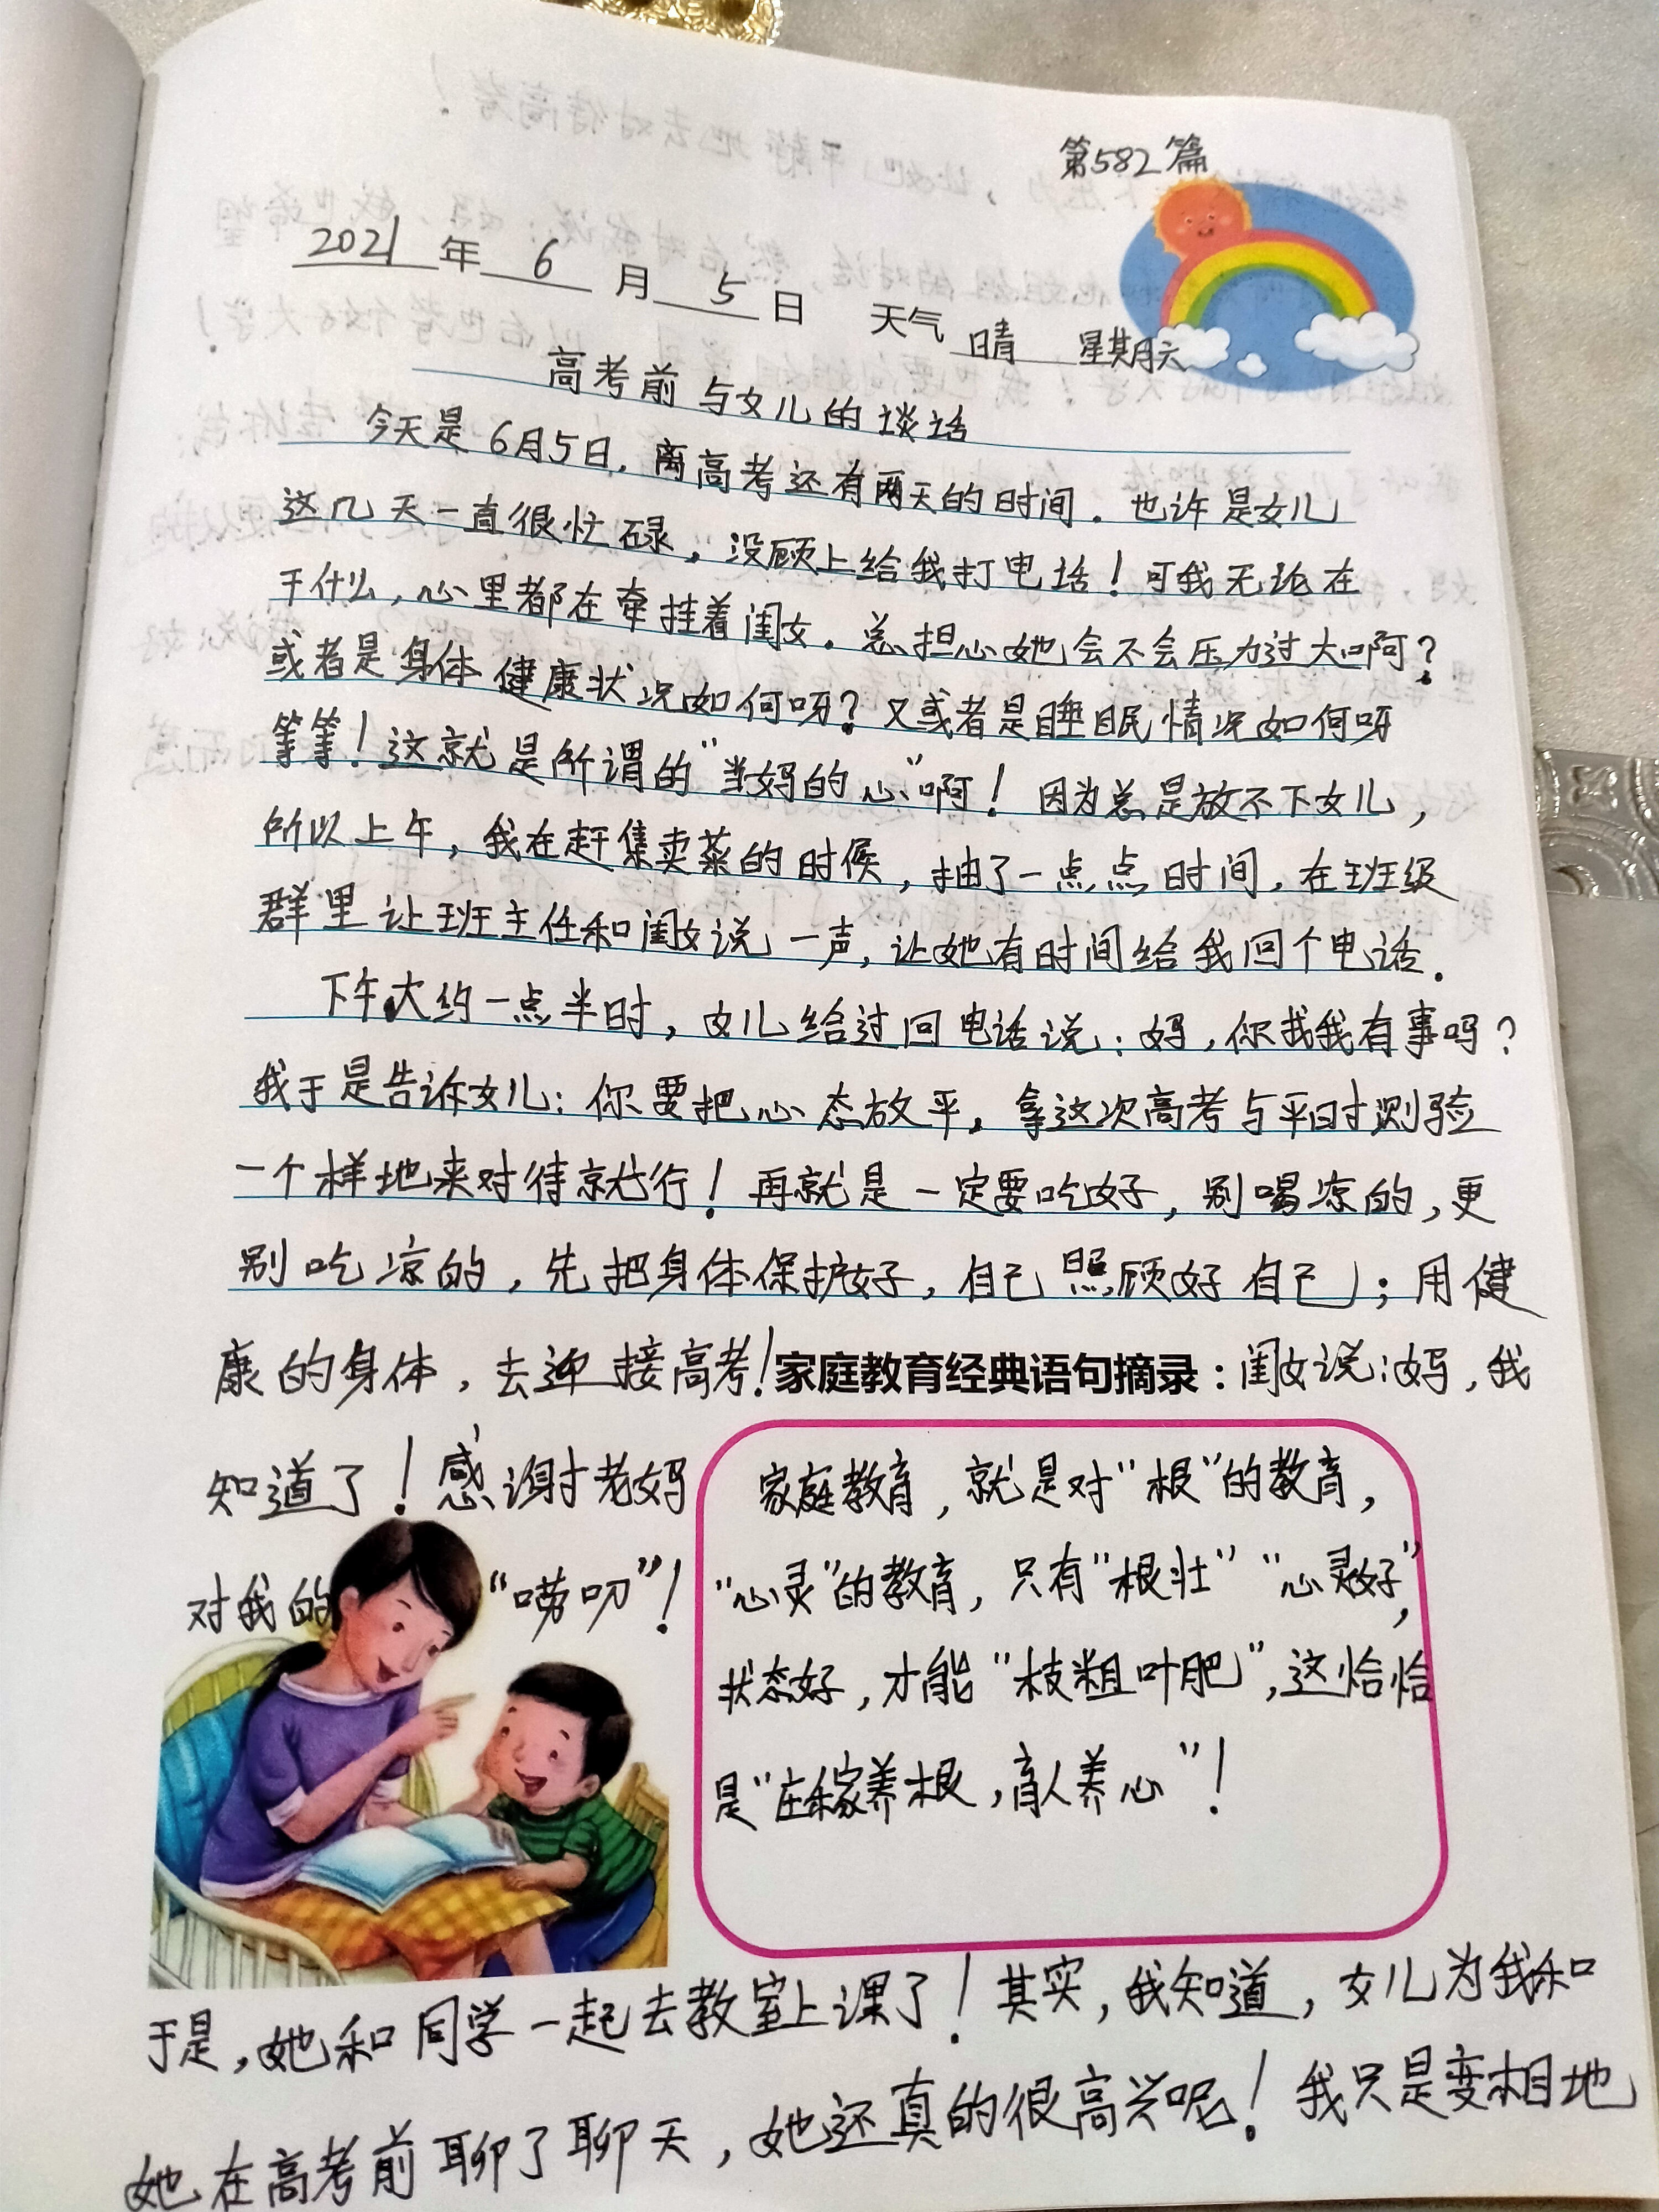 第582篇
2021年6月5日 天气 晴 星期六
高考前与女儿的谈话
今天是6月5日,离高考还有两天的时间.也许是女儿
这几天一直很忙碌,没顾上给我打电话!可我无论在
干什么,心里都在牵挂着闺女.总担心她会不会压力过大啊?
或者是身体健康状况如何呀?又或者是睡眠情况如何呀
等等!这就是所谓的"当妈的心"啊!因为总是放不下女儿,
所以上午,我在赶集卖菜的时候,抽了一点点时间,在班级
群里让班主任和闺女说一声,让她有时间给我回个电话.
下午大约一点半时,女儿给过回电话说:妈,你找我有事吗?
我于是告诉女儿:你要把心态放平,拿这次高考与平时测验
一个样地来对待就行!再就是一定要吃好,别喝凉的,更
别吃凉的,先把身体保护好,自己照顾好自己;用健
康的身体,去迎接高考!家庭教育经典语句摘录:闺女说:妈,我
知道了!感谢老妈
对我的"唠叨"!
家庭教育,就是对"根"的教育,
"心灵"的教育,只有"根壮""心灵好",
状态好,才能"枝粗叶肥",这恰恰
是"在家养根,育人养心"!
于是,她和同学一起去教室上课了!其实,我知道,女儿为我和
她在高考前聊了聊天,她还真的很高兴呢!我只是变相地